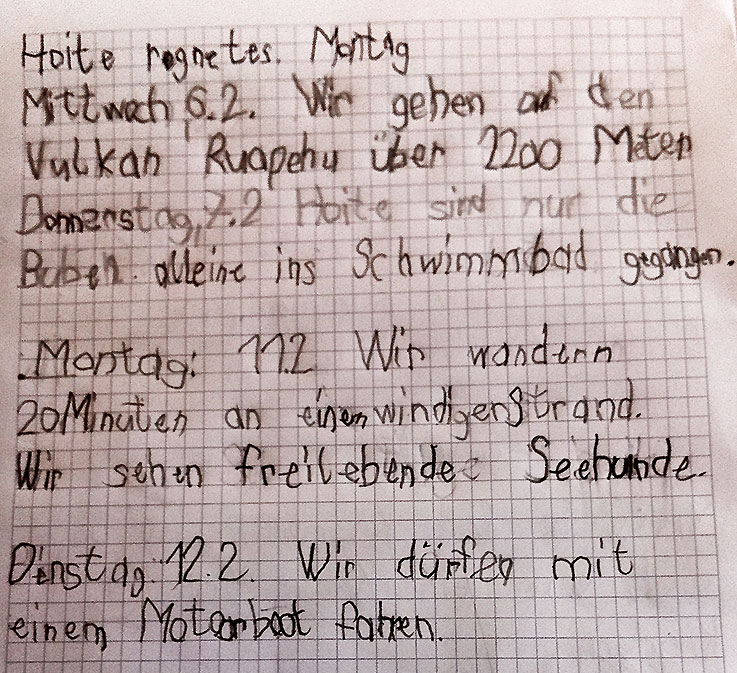 Hoite regnetes. Montag
Mittwoch 6.2. Wir gehen auf den
Vulkan Ruapehu über 2200 Meter
Donnerstag, 7.2 Hoite sind nur die
Buben alleine ins Schwimmbad gegangen.
Montag: 11.2 Wir wandern
20 Minuten an einen windigen Strand.
Wir sehen freilebende Seehunde.
Dinstag: 12.2. Wir dürfen mit
einem Motorboot fahren.